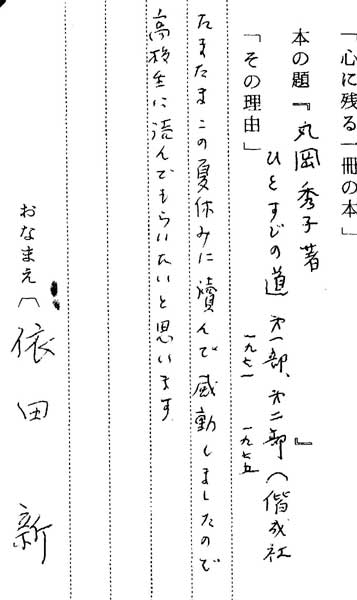 「心に残る一冊の本」
本の題『丸岡秀子著
ひとすじの道 第一部、第二部』（偕成社
一九七一 一九七五
「その理由」
たまたまこの夏休みに讀んで感動しましたので
高校生に読んでもらいたいと思います
おなまえ（依田 新